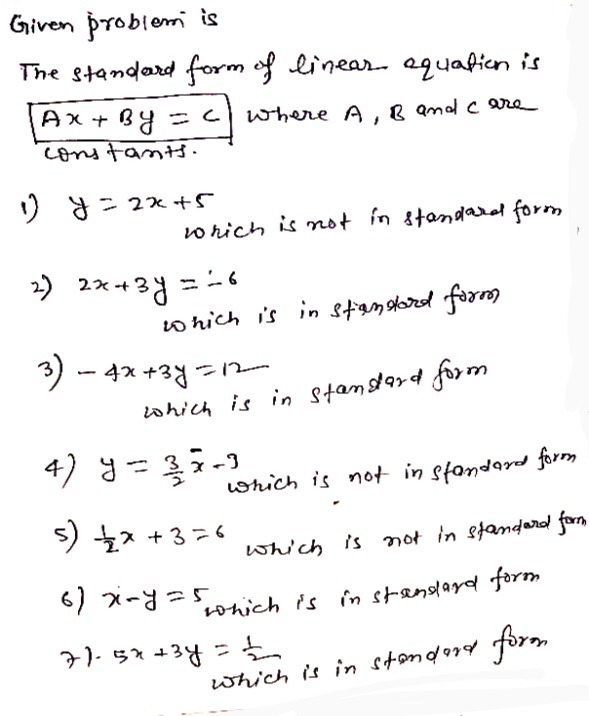 Given problem is
The standard form of linear equation is
Ax + By = C where A, B and C are
constants.
1) y = 2x + 5
which is not in standard form
2) 2x + 3y = -6
which is in standard form
3) - 4x + 3y = 12
which is in standard form
4) y = 3/2 x - 9
which is not in standard form
5) 1/2 x + 3 = 6 which is not in standard form
6) x - y = 5 which is in standard form
7). 5x + 3y = 1/2
which is in standard form